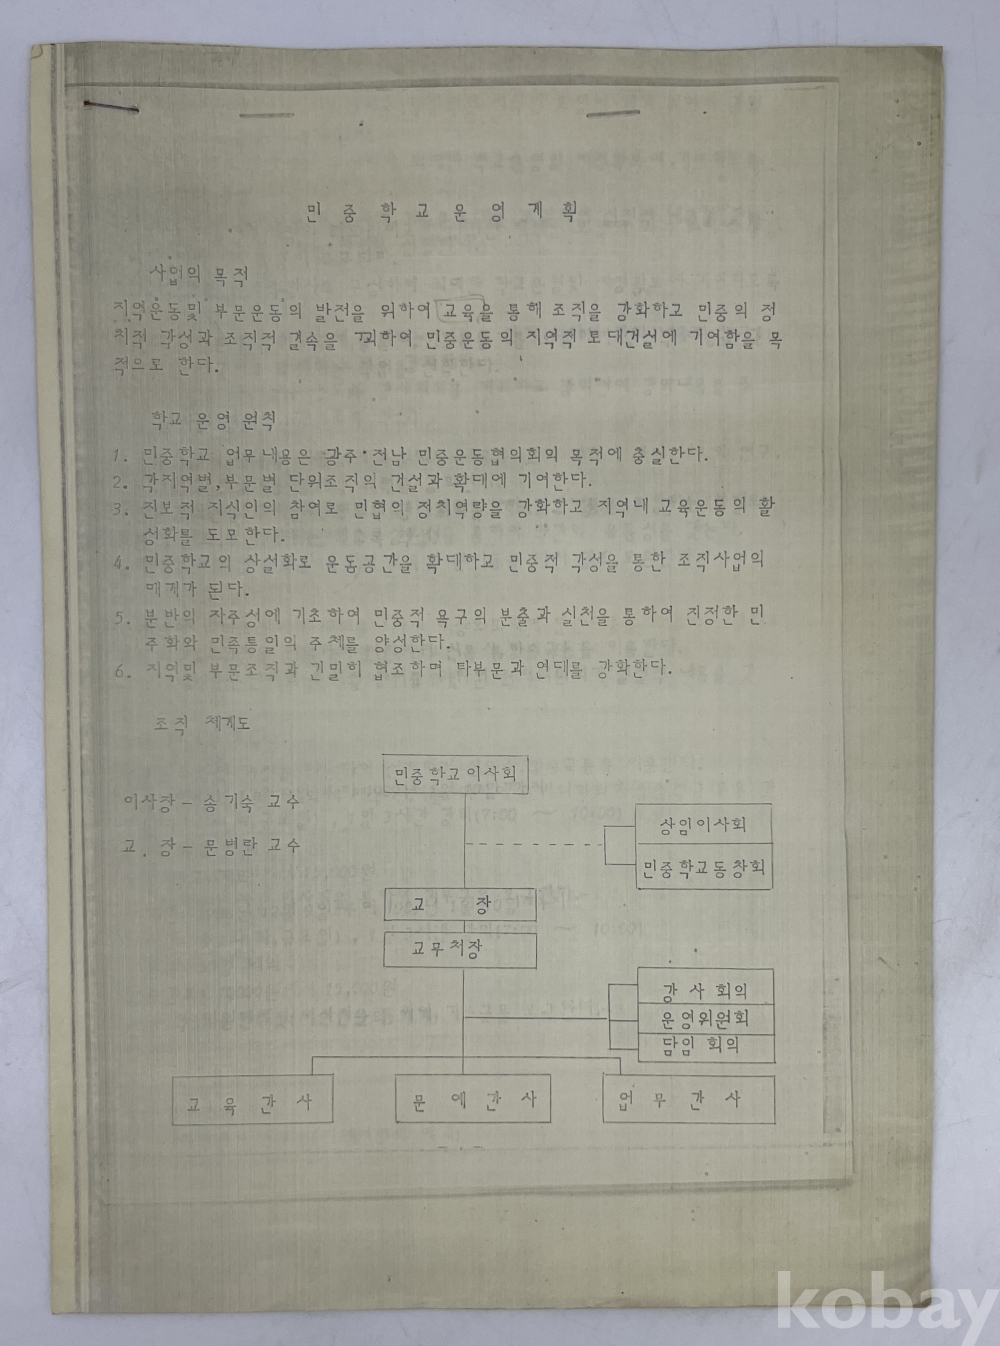 민중학교운영계획
사업의 목적
지역운동및 부문운동의 발전을 위하여 교육을 통해 조직을 강화하고 민중의 정
치적 각성과 조직적 결속을 꾀하여 민중운동의 지역적 토대건설에 기여함을 목
적으로 한다.
학교 운영 원칙
1. 민중학교 업무내용은 광주·전남 민중운동협의회의 목적에 충실한다.
2. 각지역별,부문별 단위조직의 건설과 확대에 기여한다.
3. 진보적 지식인의 참여로 민협의 정치역량을 강화하고 지역내 교육운동의 활
성화를 도모한다.
4. 민중학교의 상설화로 운동공간을 확대하고 민중적 각성을 통한 조직사업의
매개가 된다.
5. 분반의 자주성에 기초하여 민중적 욕구의 분출과 실천을 통하여 진정한 민
주화와 민족통일의 주체를 양성한다.
6. 지역및 부문조직과 긴밀히 협조하며 타부문과 연대를 강화한다.
조직 체계도
민중학교이사회
이사장 - 송기숙 교수
상임이사회
교 장 - 문병란 교수
민중학교동창회
교 장
교무처장
강사회의
운영위원회
담임 회의
교육간사
문예간사
업무간사
kobay